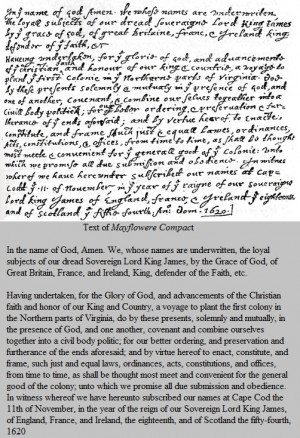 In yͤ name of god Amen. We whose names are underwriten,
the loyall subjects of our dread soveraigne Lord King James
by yͤ grace of god, of great britaine, franc, & Ireland king,
defender of yͤ faith, &c
Haveing undertaken, for yͤ glorie of god, and advancements
of yͤ christian faith and honour of our king & countrie, a voyage to
plant yͤ first colonie in yͤ Northerne parts of Virginia. Doe
by these presents solemnly & mutualy in yͤ presence of god, and
one of another, covenant, & combine our selves togeather into a
civill body politick; for our better ordering, & preservation & fur-
therance of yͤ ends aforesaid; and by vertue hearof to enacte,
constitute, and frame shuch just & equall lawes, ordinances,
Acts, constitutions, & offices, from time to time, as shall be thought
most meete & convenient for yͤ generall good of yͤ Colonie: unto
which we promise all due submission and obedience. In witnes
wherof we have hereunder subscribed our names at Cap-
Codd yͤ ·11· of November, in yͤ year of yͤ raigne of our soveraigne
Lord king James of England, france, & Ireland yͤ eighteenth
and of Scotland yͤ fiftie fourth. Ano: Dom. 1620.
Text of Mayflowere Compact
In the name of God, Amen. We, whose names are underwritten, the loyal
subjects of our dread Sovereign Lord King James, by the Grace of God, of
Great Britain, France, and Ireland, King, defender of the Faith, etc.
Having undertaken, for the Glory of God, and advancements of the Christian
faith and honor of our King and Country, a voyage to plant the first colony in
the Northern parts of Virginia, do by these presents, solemnly and mutually, in
the presence of God, and one another, covenant and combine ourselves
together into a civil body politic; for our better ordering, and preservation and
furtherance of the ends aforesaid; and by virtue hereof to enact, constitute, and
frame, such just and equal laws, ordinances, acts, constitutions, and offices,
from time to time, as shall be thought most meet and convenient for the general
good of the colony; unto which we promise all due submission and obedience.
In witness whereof we have hereunto subscribed our names at Cape Cod the
11th of November, in the year of the reign of our Sovereign Lord King James,
of England, France, and Ireland, the eighteenth, and of Scotland the fifty-fourth,
1620